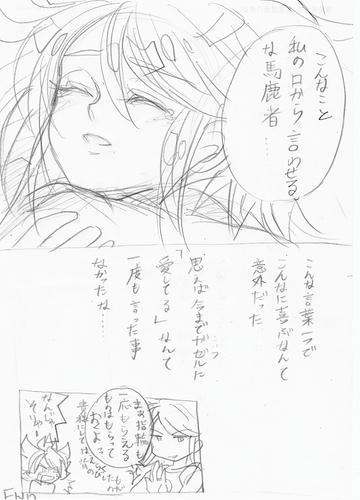 こんなこと
私の口から言わせる
な馬鹿者……
こんな言葉一つで
こんなに喜ぶなんて
意外だった
思えば今までガゼルに
「愛してる」なんて
一度も言った事
なかったな…
まあ指輪も
一応もらえる
ものはもらって
おこう
なんじゃ
そりゃー
END